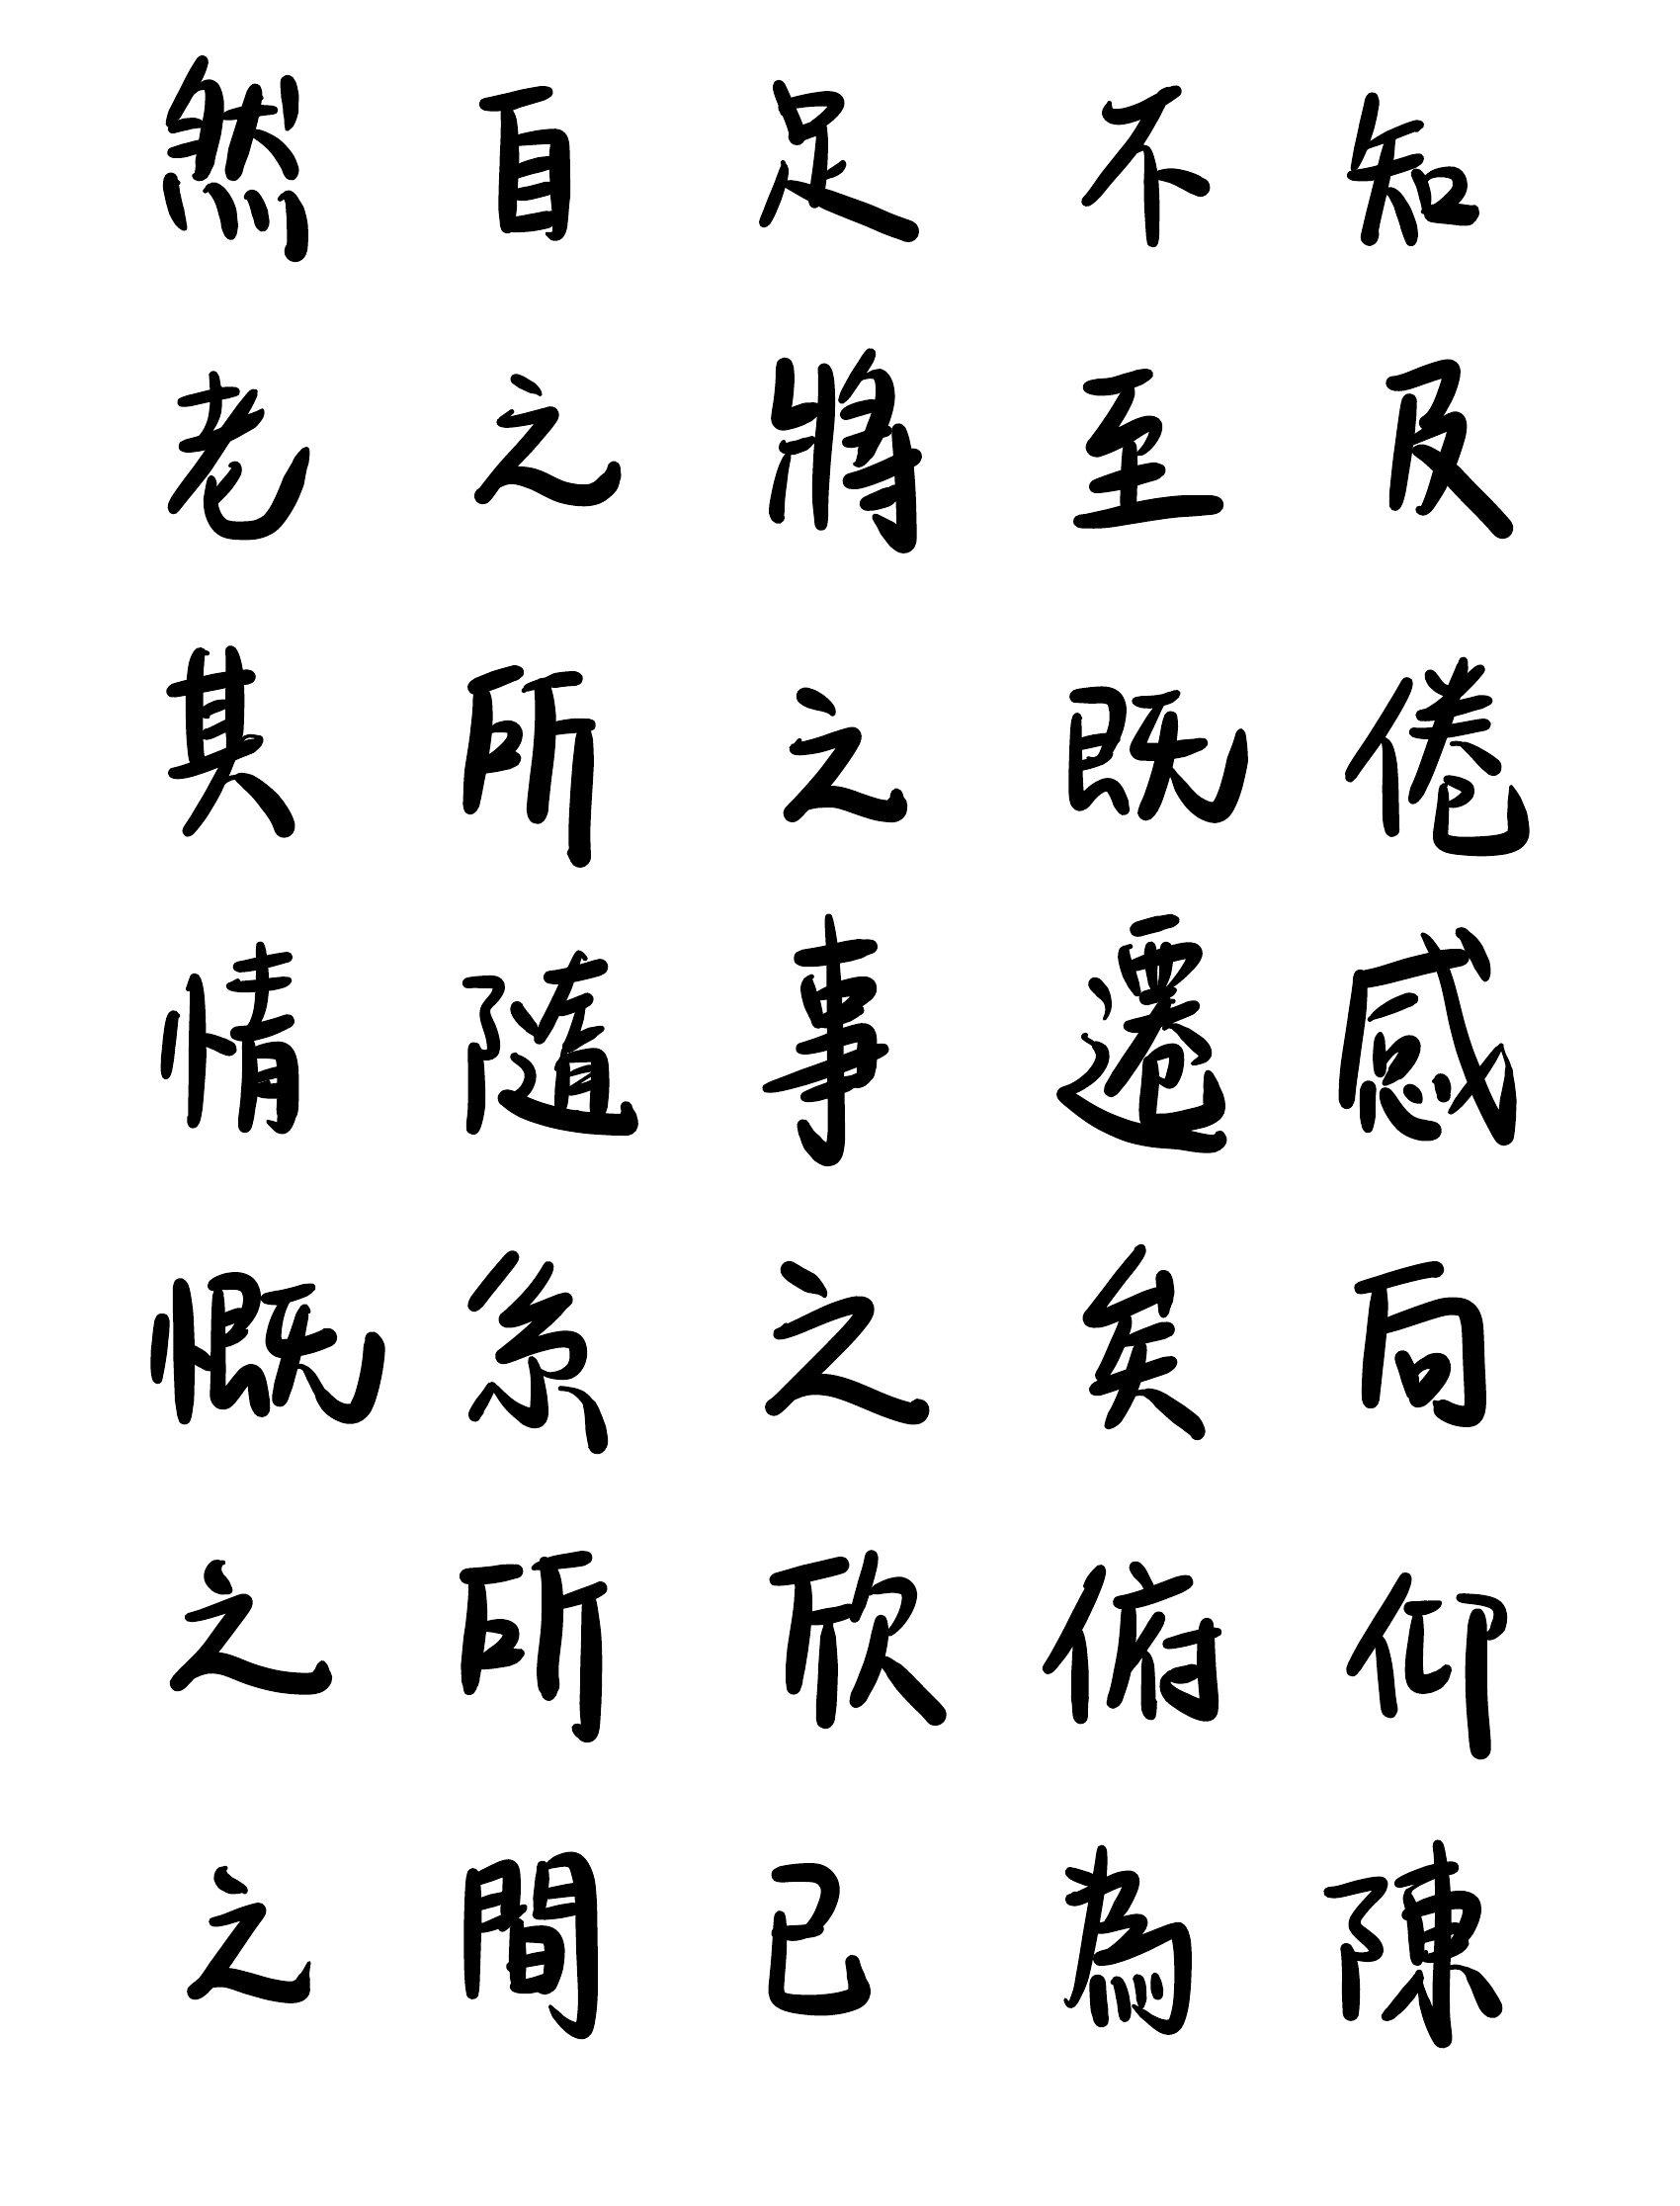 然自足不知
老之將至及
其所之既倦
情隨事遷感
慨系之矣向
之所欣俯仰
之間已為陳